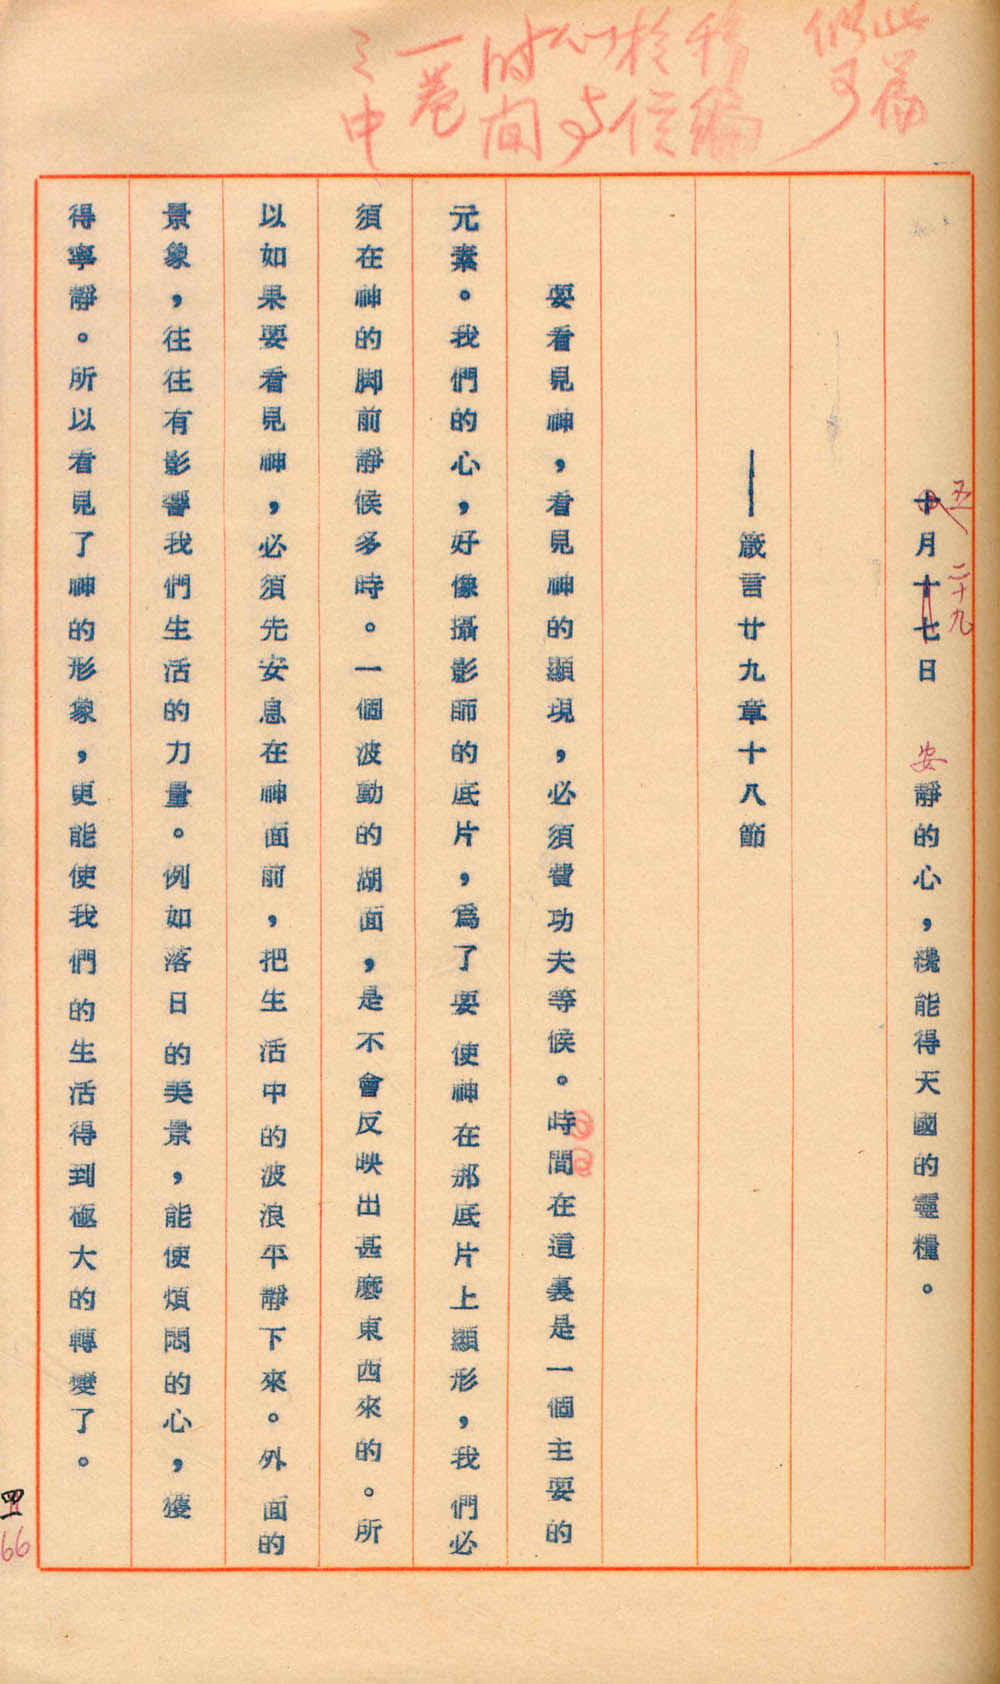 此篇
似可
移編
於信
心与
时间
一卷
之中
五 二十九
十月十七日 安靜的心，纔能得天國的靈糧。
——箴言廿九章十八節
要看見神，看見神的顯現，必須費功夫等候。時間在這裏是一個主要的
元素。我們的心，好像攝影師的底片，爲了要使神在那底片上顯形，我們必
須在神的脚前靜候多時。一個波動的湖面，是不會反映出甚麽東西來的。所
以如果要看見神，必須先安息在神面前，把生活中的波浪平靜下來。外面的
景象，往往有影響我們生活的力量。例如落日的美景，能使煩悶的心，獲
得寧靜。所以看見了神的形象，更能使我們的生活得到極大的轉變了。
四
66